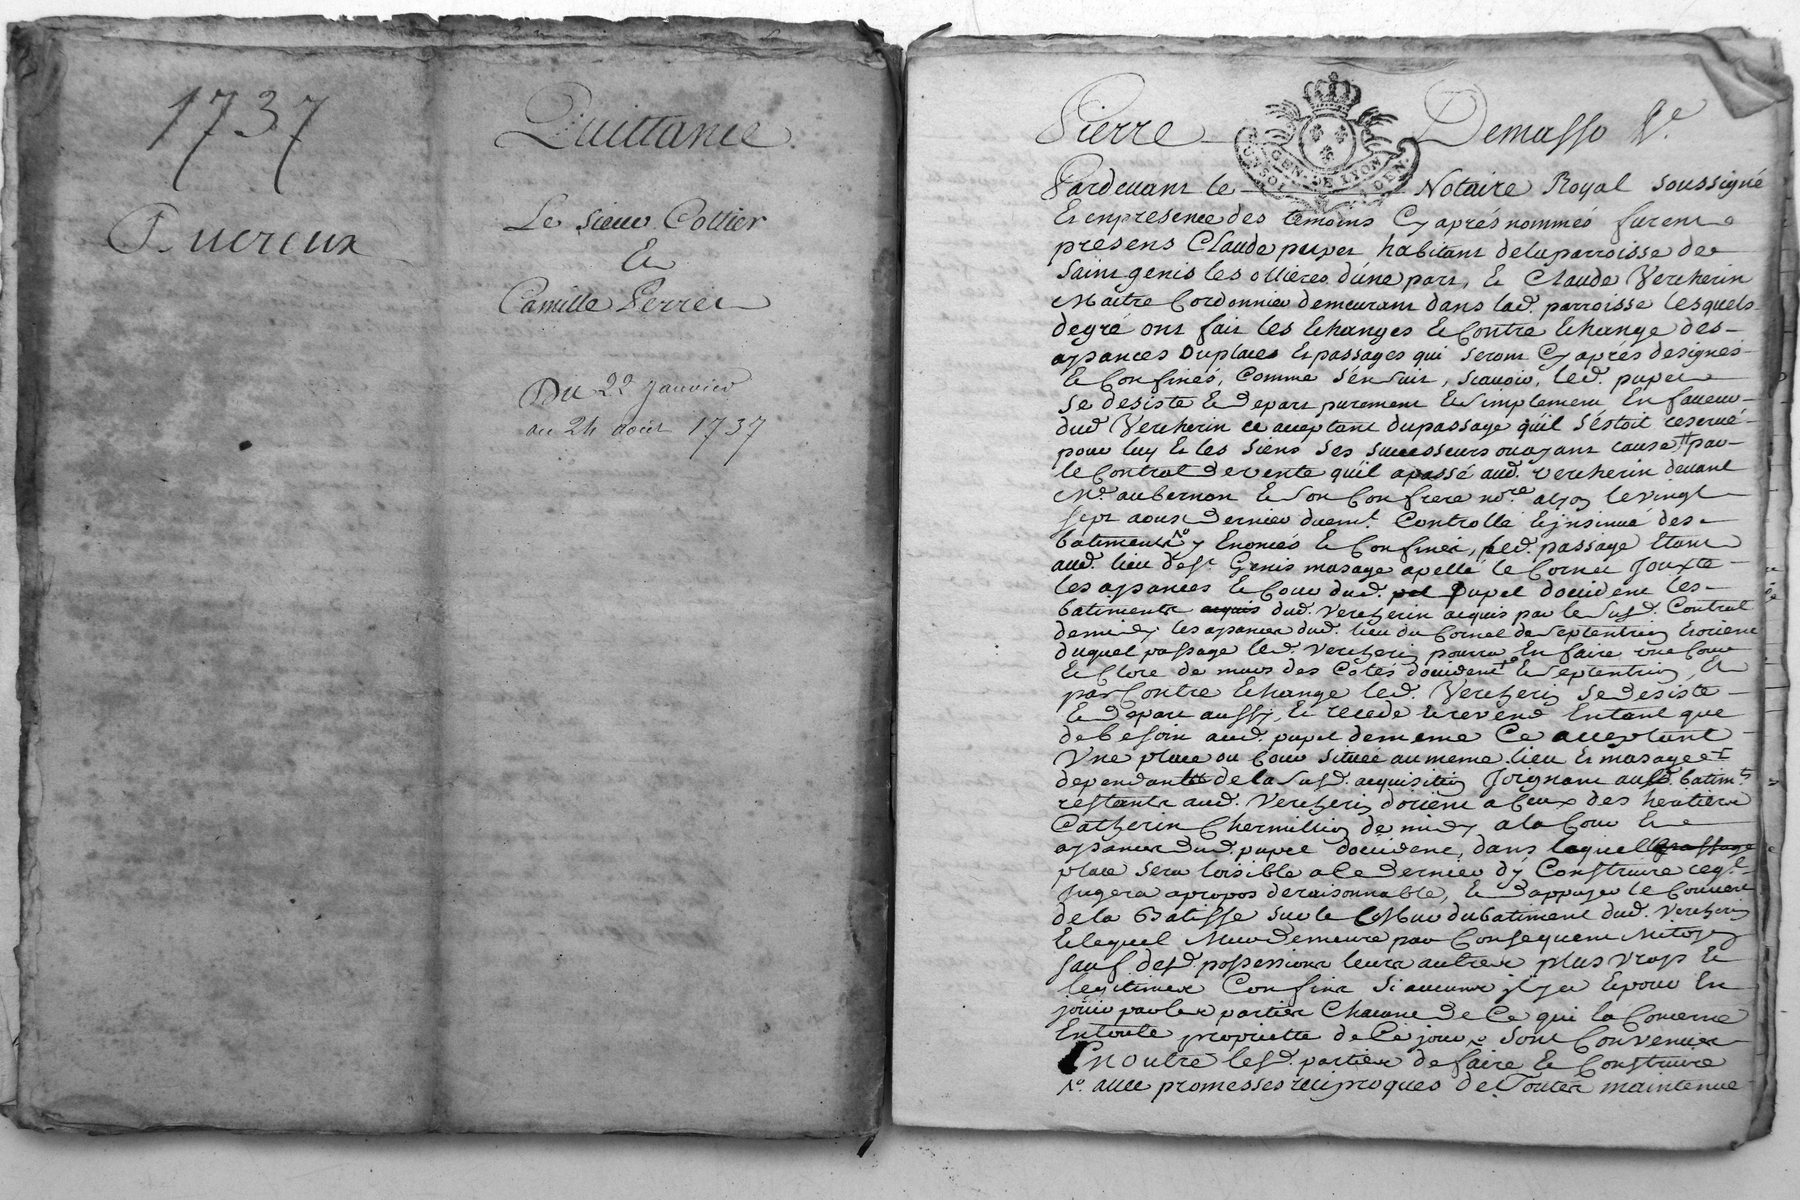 1737
Ducreux
Quittance.
Le sieur Cottier
Et
Camille Perret
Du 22 janvier
au 24 août 1737
Pierre Demasso
GEN. DE LYON
UN SOL
Pardevant le Notaire Royal soussigné
Et en presence des temoins Cy aprés nommés furent
presens Claude pupet habitant de la parroisse de
saint genis les ollières d'une part, & Claude Vercherin
Maitre Cordonnier demeurant dans lad. parroisse lesquels
de gré ont fait les Echanges & Contre Echange des
aysances ou places & passages qui seront Cy aprés designés
& Confinés, Comme s'ensuit, scavoir, led. pupet
se desiste & depart purement & simplement En faveur
dud. Vercherin ce acceptant du passage qu'il s'estoit reservé
pour luy & les siens ses successeurs ou ayant cause par
le Contrat de vente qu'il a passé aud. vercherin devant
Me. aubernon & son Confrere nore. a lyon le vingt
sept aoust dernier duemt. Controllé & insinué des
batiments y Enoncés & Confinés, led. passage Etant
aud. lieu de st. Genis masage apellé le Cornet Jouxte
les aysances & Cour dud. pupet d'occident les
batiments acquis dud. vercherin acquis par le susd. Contrat
de midy les aysances dud. lieu du Cornet de septentrion & orient
duquel passage led. vercherin pourra En faire une Cour
& Clore de murs des Cotés d'occident & septentrion, &
par Contre Echange led. Vercherin se desiste
& depart aussy, & recede & revend En tant que
de besoin aud. pupet de meme Ce acceptant
Une place ou Cour située au meme lieu & masage et
dependant de la susd. acquisition Joignant aud. batimts
restants aud. Vercherin d'orient a Ceux des heritiers
Catherin Chermillion de midy a la Cour &
aysances dud. pupet d'occident, dans laquelle passage
place sera loisible a Ce dernier d'y Construire ce qu'il
Jugera a propos de raisonnable, & d'appuyer le Couvert
de la Batisse sur le Mur du batiment dud. Vercherin
& lequel Mur demeure par Consequent Mitoyen
sauf desd. possessions leurs autres plus vrays &
legitimes Confins si aucuns il y a & pour En
jouir par les parties Chacune de Ce qui la Concerne
En toute propriette de Ce jour, sont Convenues
En outre lesd. parties de faire & Construire
avec promesses reciproques de Toutes maintenue